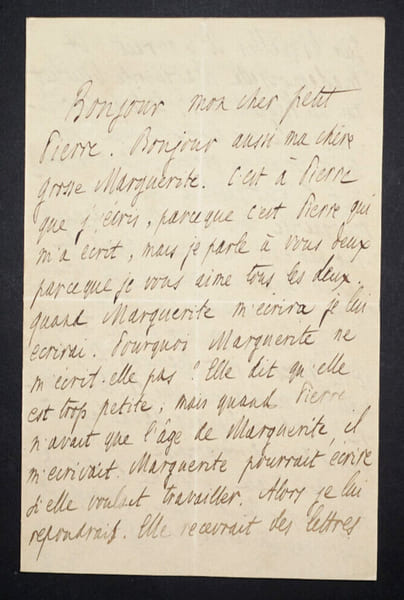 Bonjour mon cher petit
Pierre. Bonjour aussi ma chère
grosse Marguerite. C'est à Pierre
que j'écris, parceque c'est Pierre qui
m'a écrit, mais je parle à vous deux
parceque je vous aime tous les deux
quand Marguerite m'écrira je lui
écrirai. Pourquoi Marguerite ne
m'écrit-elle pas ? Elle dit qu'elle
est trop petite, mais quand Pierre
n'avait que l'âge de Marguerite, il
m'écrivait. Marguerite pourrait écrire
si elle voulait travailler. Alors je lui
repondrais. Elle recevrait des lettres